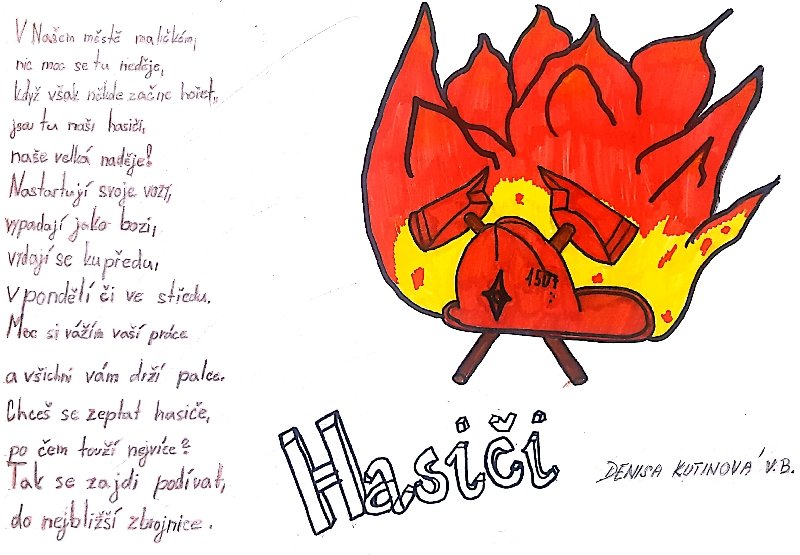 V Našem městě maličkém,
nic moc se tu neděje,
když však někde začne hořet,
jsou tu naši hasiči,
naše velká naděje!
Nastartují svoje vozi,
vypadají jako bozi,
vrdají se kupředu,
v pondělí či ve středu.
Moc si vážím vaší práce
a všichni vám drží palce.
Chceš se zeptat hasiče,
po čem touží nejvíce?
Tak se zajdi podívat,
do nejbližší zbrojnice.
150
Hasiči
DENISA KUTINOVÁ V.B.